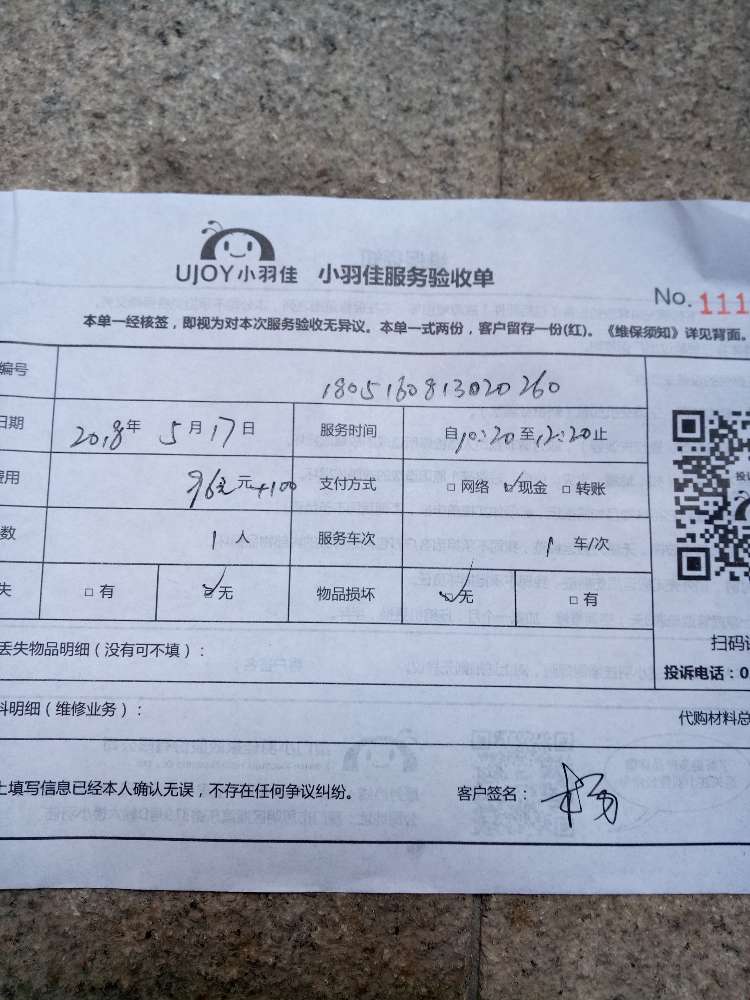 UJOY小羽佳 小羽佳服务验收单
No. 111
本单一经核签，即视为对本次服务验收无异议。本单一式两份，客户留存一份(红)。《维保须知》详见背面。
编号 1805160813020260
日期 2018年 5月17日 服务时间 自10:20至12:20止
费用 96元+100 支付方式 □网络 ☑现金 □转账
数 1人 服务车次 1 车/次
失 □有 ☑无 物品损坏 ☑无 □有
丢失物品明细（没有可不填）：
扫码
投诉电话：0
料明细（维修业务）：
代购材料总
上填写信息已经本人确认无误，不存在任何争议纠纷。 客户签名：杨